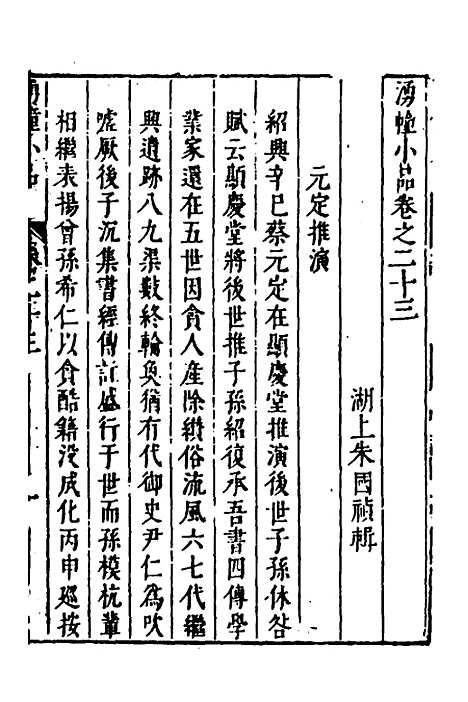 湧幢小品卷之二十三
湖上朱國禎輯
元定推演
紹興辛巳蔡元定在顯慶堂推演後世子孫休咎
賦云顯慶堂將後世推子孫紹復承吾書四傳學
業家還在五世因貪人產除纘俗流風六七代繼
興遺跡八九渠數終輪奐猶有代御史尹仁為吹
噓厥後子沉集書經傳註盛行于世而孫模杭輩
相繼表揚曾孫希仁以貪酷籍没成化丙申廵按